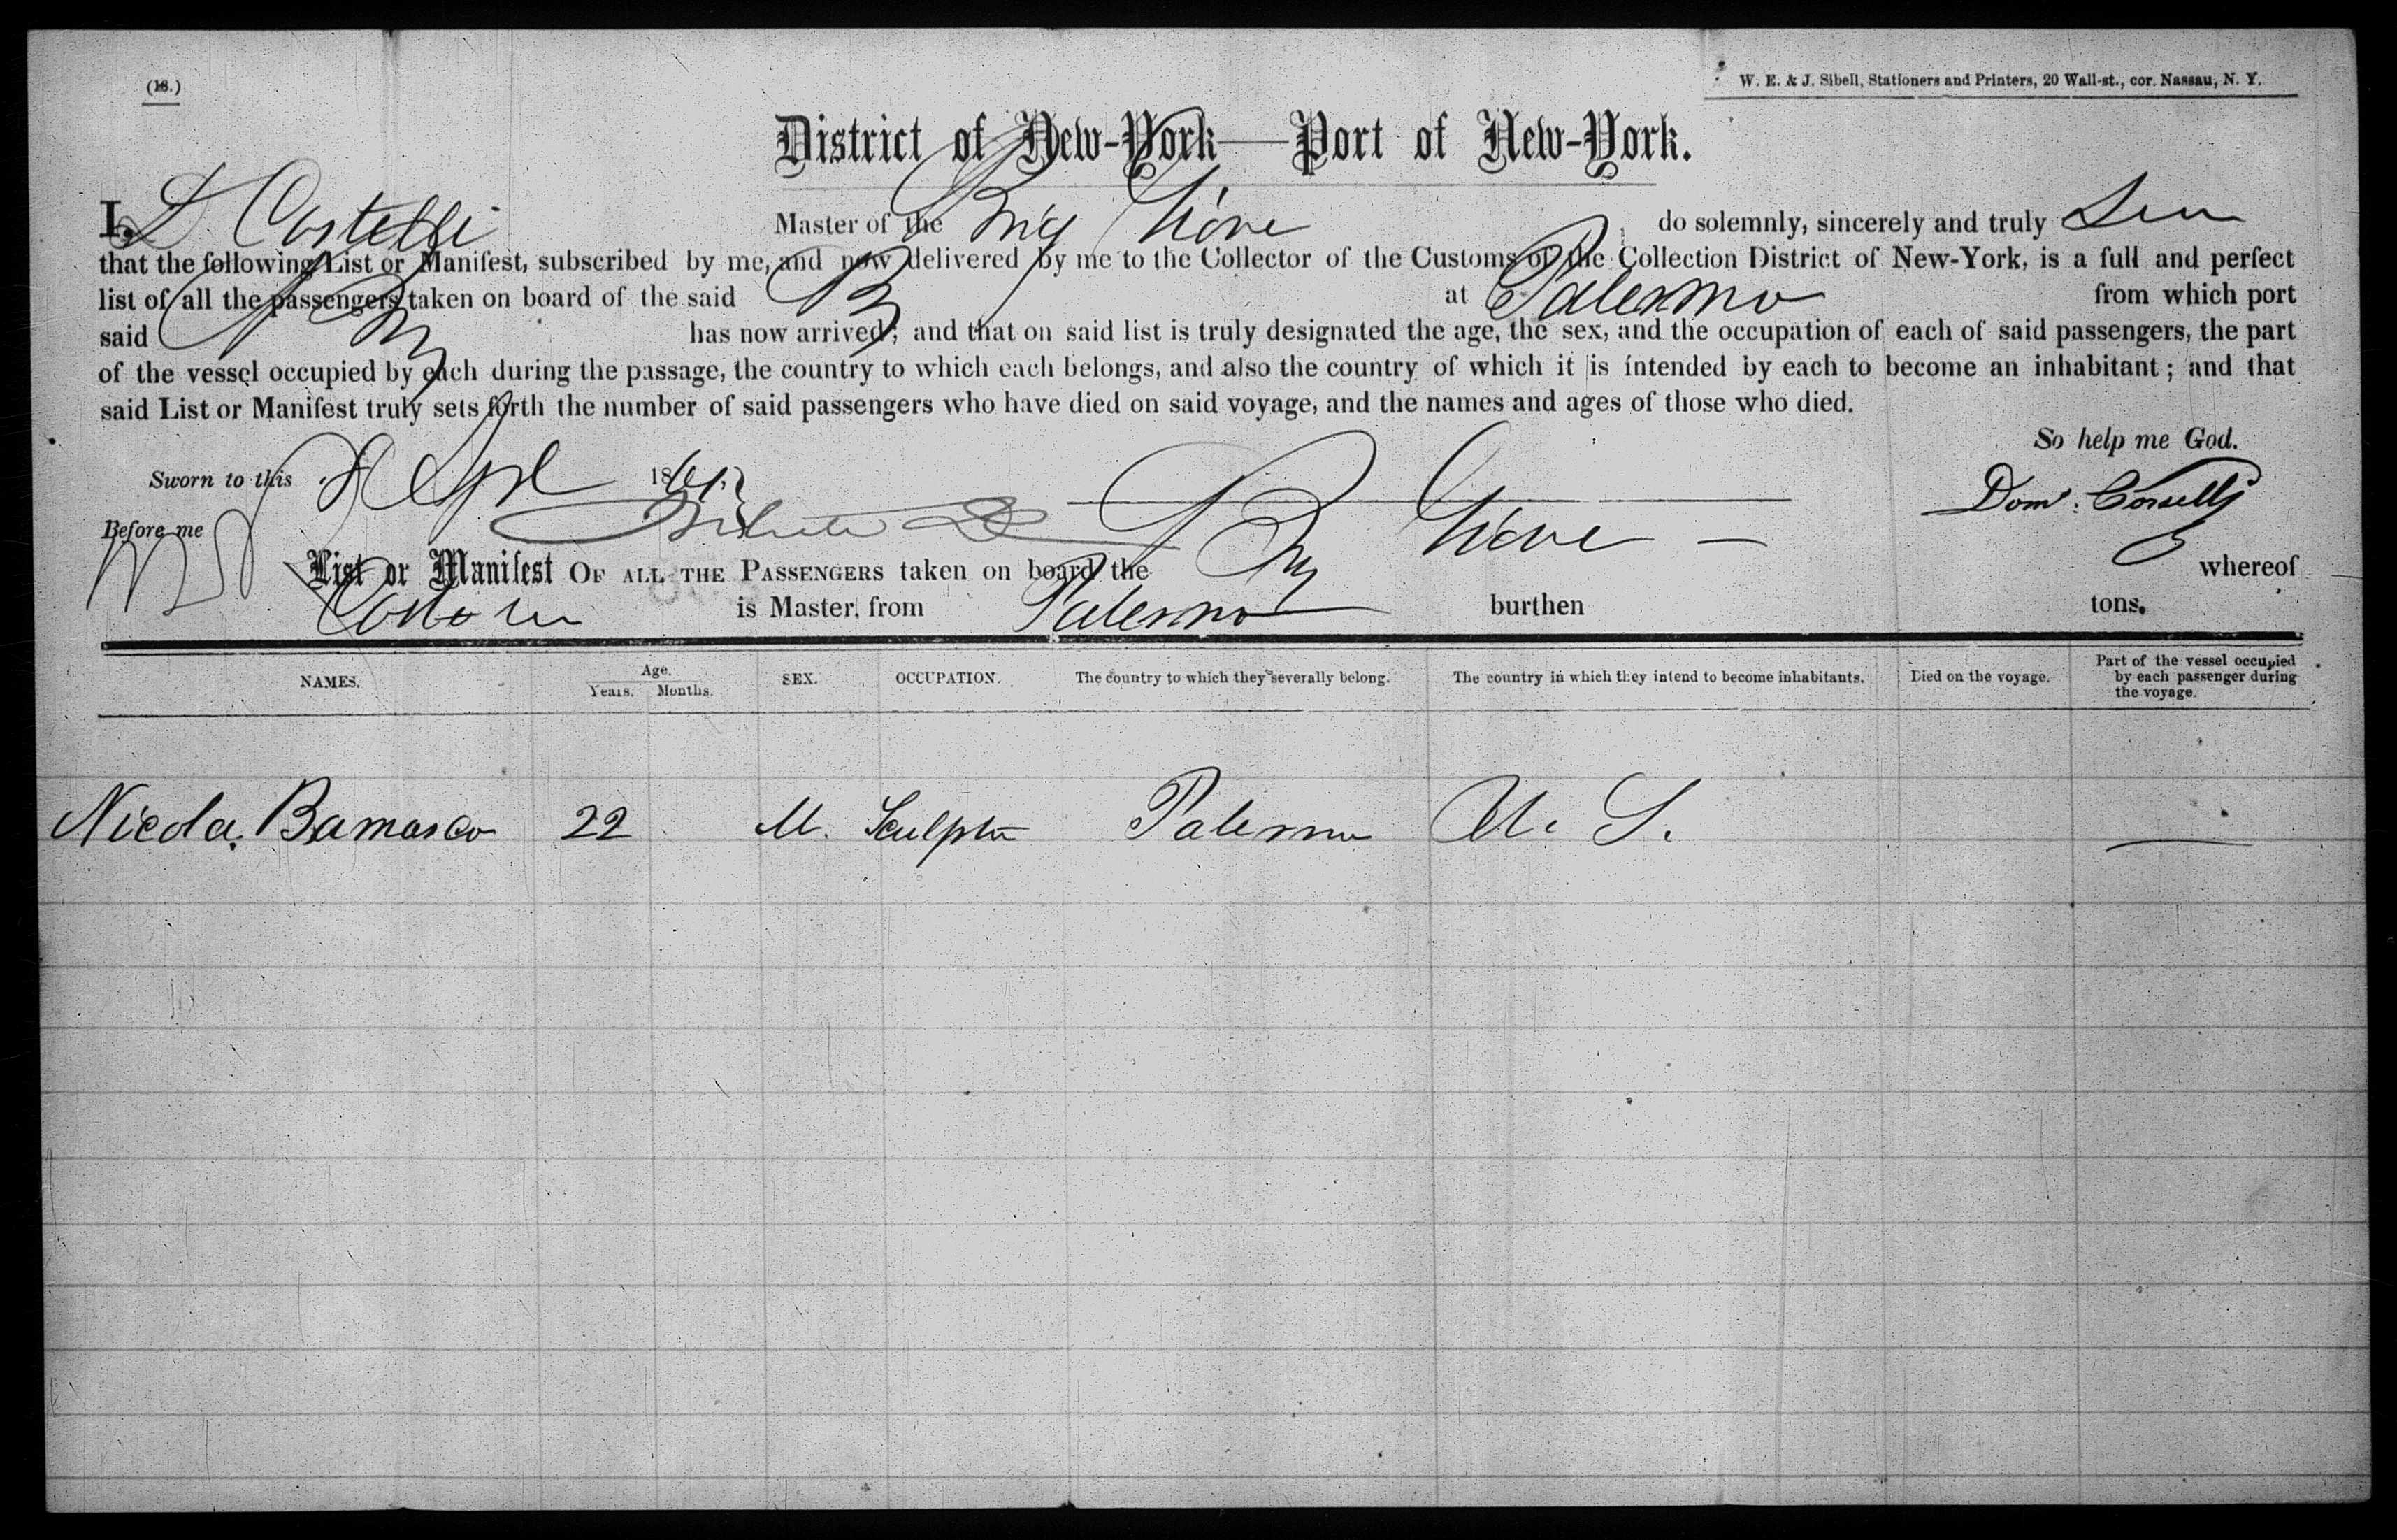 (18.)
W. E. & J. Sibell, Stationers and Printers, 20 Wall-st., cor. Nassau, N. Y.
District of New-York—Port of New-York.
I, D Master of the Brig do solemnly, sincerely and truly
that the following List or Manifest, subscribed by me, and now delivered by me to the Collector of the Customs of the Collection District of New-York, is a full and perfect
list of all the passengers taken on board of the said at Palermo from which port
said has now arrived; and that on said list is truly designated the age, the sex, and the occupation of each of said passengers, the part
of the vessel occupied by each during the passage, the country to which each belongs, and also the country of which it is intended by each to become an inhabitant; and that
said List or Manifest truly sets forth the number of said passengers who have died on said voyage, and the names and ages of those who died.
So help me God.
Sworn to this 18
Before me
List or Manifest OF ALL THE PASSENGERS taken on board the whereof
is Master, from Palermo burthen tons.
NAMES. Age. Years. Months. SEX. OCCUPATION. The country to which they severally belong. The country in which they intend to become inhabitants. Died on the voyage. Part of the vessel occupied by each passenger during the voyage.
Nicola Bamasco 22 M. Sculptor Palermo U. S. —